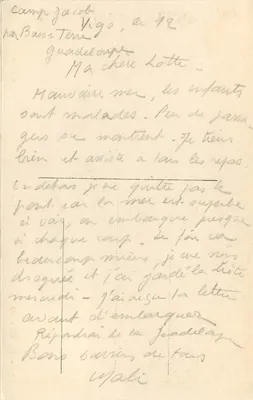 Camp Jacob
par Basse Terre
Guadeloupe
Vigo, le 12
Ma chère Lotte -
Mauvaise mer, les enfants
sont malades. Peu de passa
gers se montrent. Je tiens
bien et assiste à tous les repas.
En dehors je ne quitte pas le
pont car la mer est superbe
à voir, on embarque presque
à chaque coup. Je
beaucoup mieux, je me suis
droguée et j'ai gardé la diète
mercredi - J'ai reçu ta lettre
avant d'embarquer
Répondrai de la Guadeloupe
Bons baisers de tous